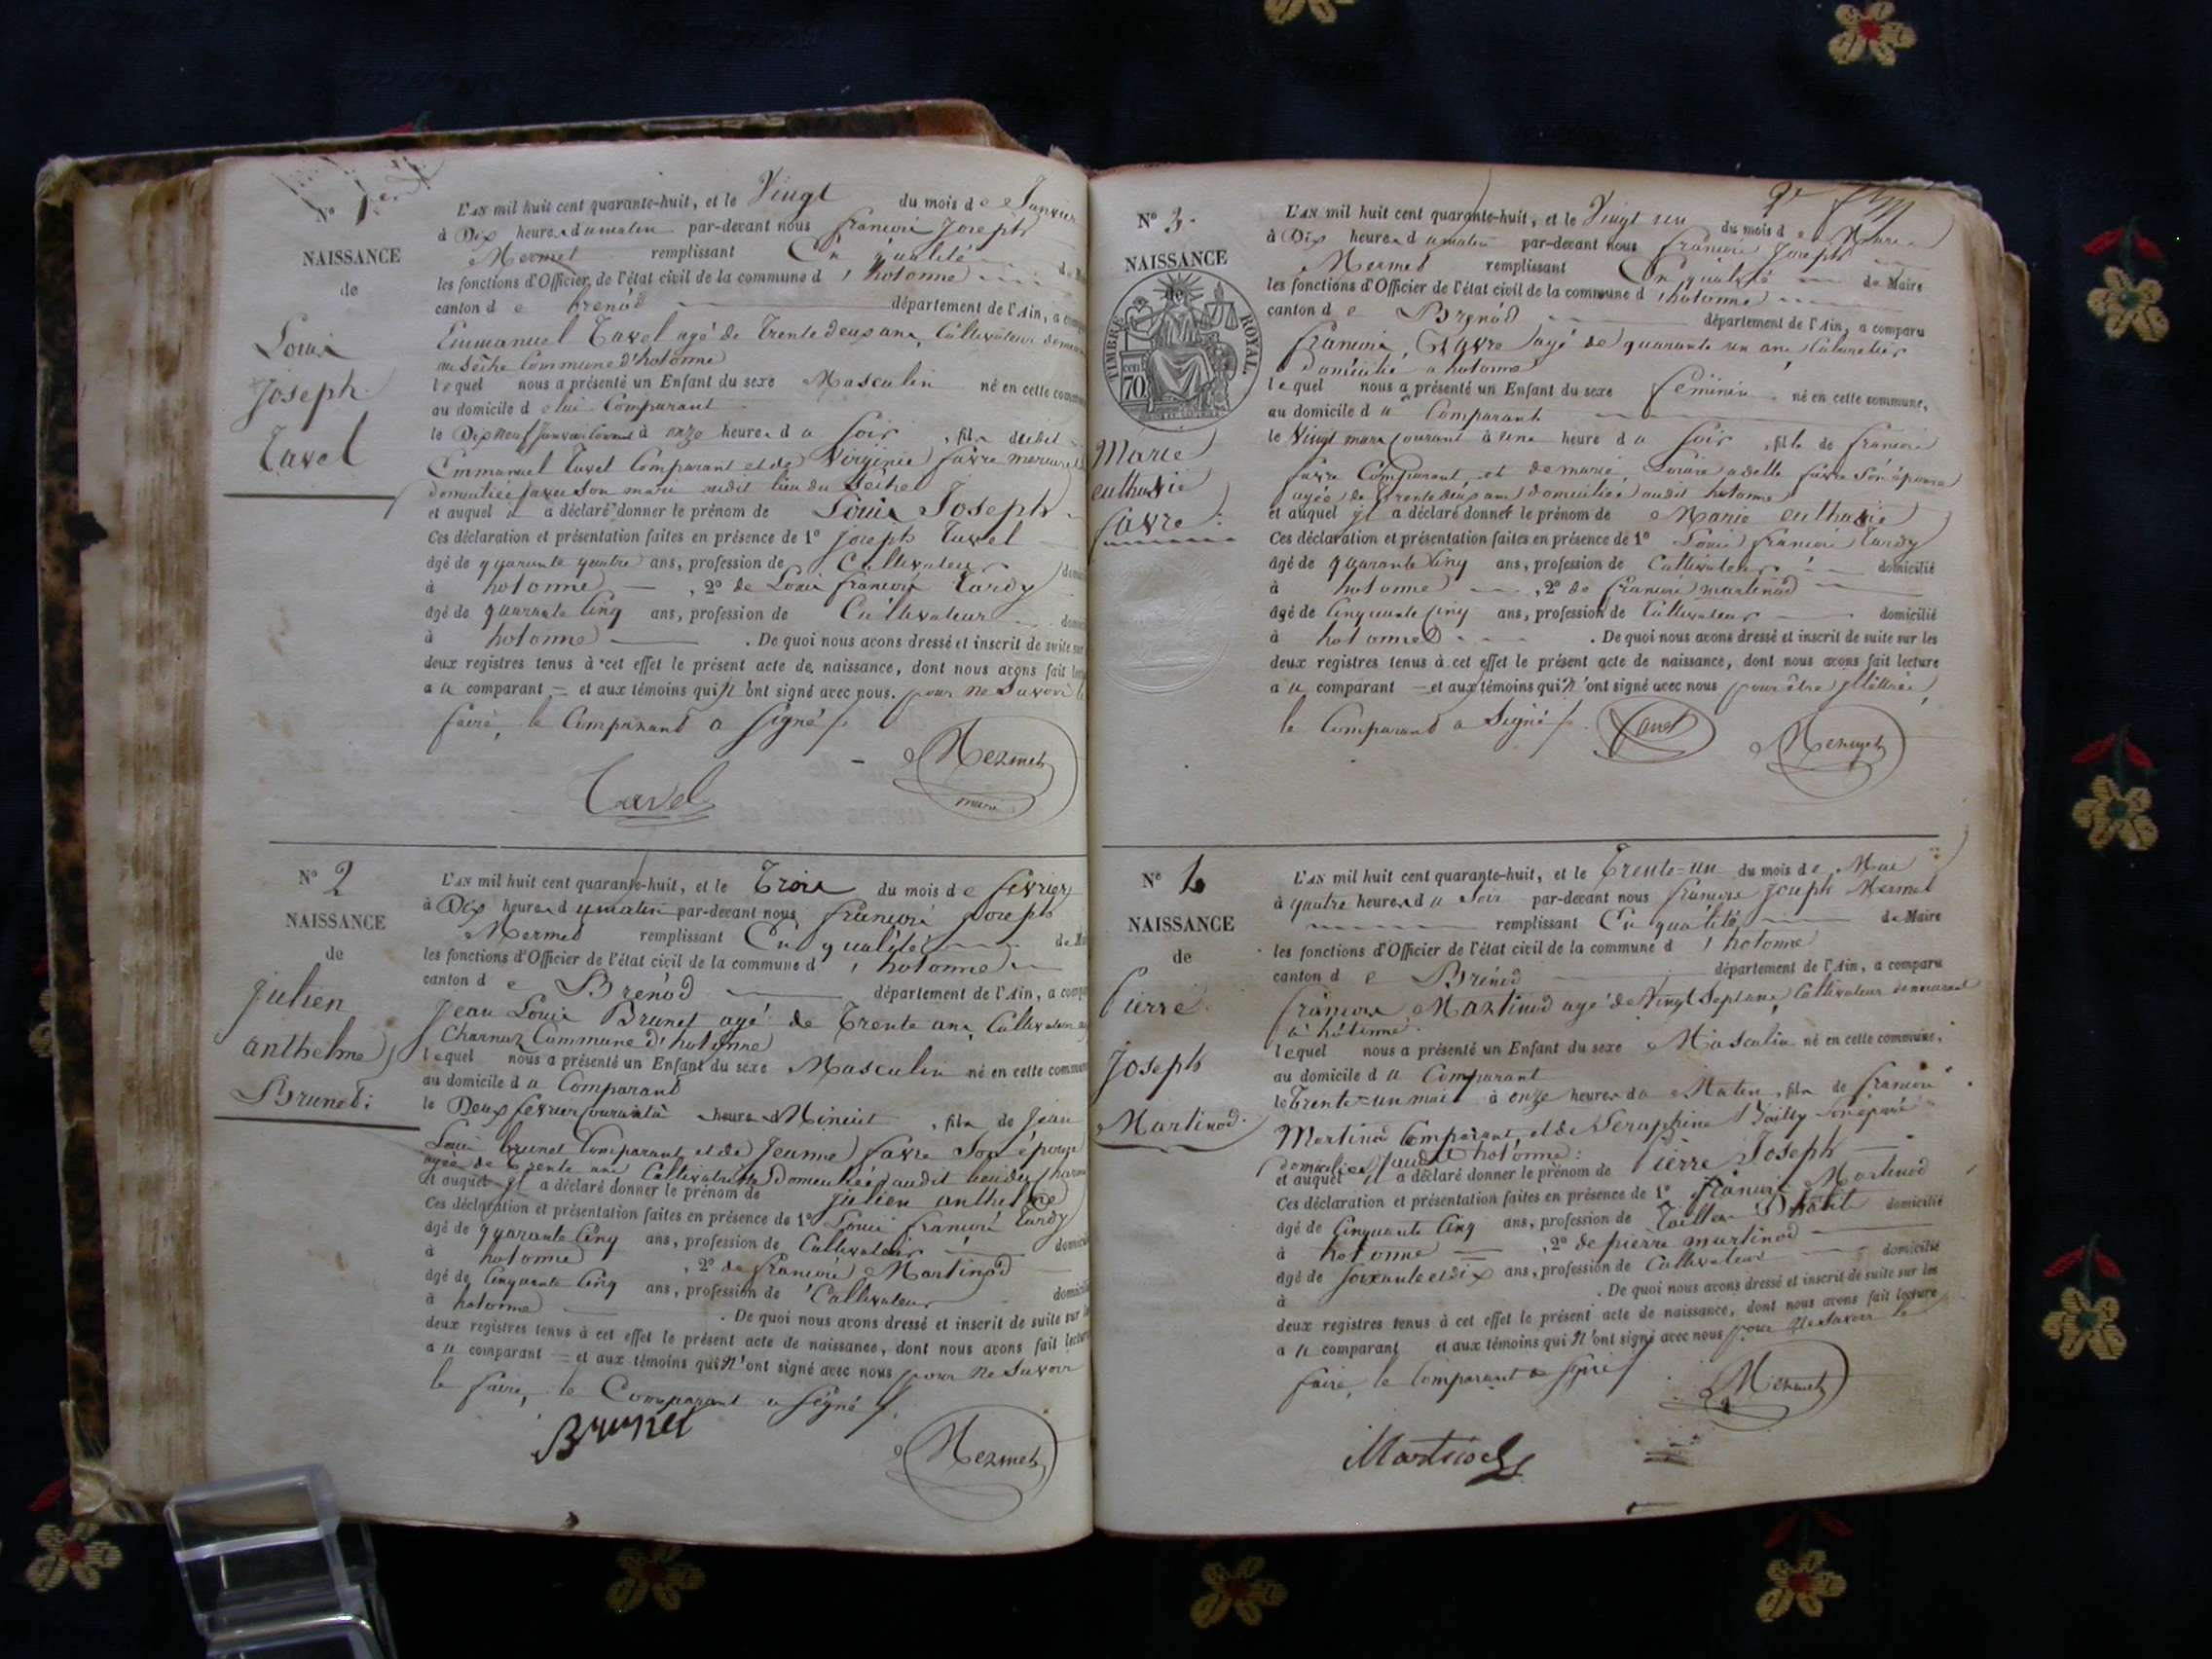 N° 1er
NAISSANCE
de
Louis
Joseph
Tavel
L'AN mil huit cent quarante-huit, et le Vingt du mois de Janvier
à Dix heures du matin par-devant nous françois Joseph
Mermet remplissant En qualité de
les fonctions d'Officier de l'état civil de la commune d'hotonne
canton de brenod département de l'Ain, a
Emmanuel Tavel agé de Trente deux ans, Cultivateur
au Commune d'hotonne
lequel nous a présenté un Enfant du sexe Masculin né en cette
au domicile de lui Comparant
le Dix neuf Janvier Courant à onze heures du Soir, fils dudit
Emmanuel Tavel Comparant et de Virginie favre
domiciliée avec son mari audit lieu du
et auquel il a déclaré donner le prénom de Louis Joseph
Ces déclaration et présentation faites en présence de 1° Joseph Tavel
âgé de quarante quatre ans, profession de Cultivateur
à hotonne, 2° de Louis françois Tardy
âgé de quarante Cinq ans, profession de Cultivateur
à hotonne. De quoi nous avons dressé et inscrit de suite sur
deux registres tenus à cet effet le présent acte de naissance, dont nous avons fait
au comparant et aux témoins qui n'ont signé avec nous. pour ne Savoir le
faire, le Comparant a signé
Mermet
maire
Tavel
N° 2
NAISSANCE
de
Julien
anthelme
Brunet
L'AN mil huit cent quarante-huit, et le Trois du mois de fevrier
à Dix heures du matin par-devant nous françois Joseph
Mermet remplissant En qualité
les fonctions d'Officier de l'état civil de la commune d'hotonne
canton de Brénod département de l'Ain, a
Jean Louis Brunet agé de Trente ans, Cultivateur
Commune d'hotonne
lequel nous a présenté un Enfant du sexe Masculin né en cette
au domicile du Comparant
le Deux fevrier Courant à heure Minuit, fils de Jean
Louis brunet Comparant, et de Jeanne favre Son épouse
agée de Trente ans domiciliée audit lieu
et auquel il a déclaré donner le prénom de Julien anthelme
Ces déclaration et présentation faites en présence de 1° Louis françois Tardy
âgé de quarante Cinq ans, profession de Cultivateur
à hotonne, 2° de françois Martinod
âgé de Cinquante Cinq ans, profession de Cultivateur
à hotonne. De quoi nous avons dressé et inscrit de suite sur
deux registres tenus à cet effet le présent acte de naissance, dont nous avons fait lecture
au comparant et aux témoins qui n'ont signé avec nous pour ne Savoir
le faire, le Comparant a signé
Brunet
Mermet
N° 3
NAISSANCE
de
TIMBRE ROYAL
70
Marie
euthasie
favre
L'AN mil huit cent quarante-huit, et le Vingt un du mois de Mars
à Dix heures du matin par-devant nous françois Joseph
Mermet remplissant En qualité de Maire
les fonctions d'Officier de l'état civil de la commune d'hotonne
canton de Brénod département de l'Ain, a comparu
françois favre agé de quarante un ans Cabaretier
domicilié a hotonne
lequel nous a présenté un Enfant du sexe féminin né en cette commune,
au domicile du Comparant
le Vingt mars Courant à une heure du Soir, fille de françois
favre Comparant, et de marie favre Son épouse
agée de Trente deux ans domiciliée audit hotonne
et auquel il a déclaré donner le prénom de Marie euthasie
Ces déclaration et présentation faites en présence de 1° Louis françois Tardy
âgé de quarante Cinq ans, profession de Cultivateur domicilié
à hotonne, 2° de françois martinod
âgé de Cinquante Cinq ans, profession de Cultivateur domicilié
à hotonne. De quoi nous avons dressé et inscrit de suite sur les
deux registres tenus à cet effet le présent acte de naissance, dont nous avons fait lecture
au comparant et aux témoins qui n'ont signé avec nous pour être
le Comparant a Signé
Mermet
N° 4
NAISSANCE
de
Pierre
Joseph
Martinod
L'AN mil huit cent quarante-huit, et le Trente-un du mois de Mai
à quatre heures du Soir par-devant nous françois Joseph Mermet
remplissant En qualité de Maire
les fonctions d'Officier de l'état civil de la commune d'hotonne
canton de Brénod département de l'Ain, a comparu
françois Martinod agé de Vingt Sept ans, Cultivateur demeurant
à hotonne
lequel nous a présenté un Enfant du sexe Masculin né en cette commune,
au domicile du Comparant
le Trente-un mai à onze heures du Matin, fils de françois
Martinod Comparant, et de Seraphine Bailly Son épouse
domiciliée audit hotonne
et auquel il a déclaré donner le prénom de Pierre Joseph
Ces déclaration et présentation faites en présence de 1° françois Martinod
âgé de Cinquante Cinq ans, profession de Tailleur D'habit domicilié
à hotonne, 2° de pierre martinod
âgé de Soixante et dix ans, profession de Cultivateur domicilié
à . De quoi nous avons dressé et inscrit de suite sur les
deux registres tenus à cet effet le présent acte de naissance, dont nous avons fait lecture
au comparant et aux témoins qui n'ont signé avec nous pour ne Savoir le
faire, le Comparant a signé
Mermet
Martinod